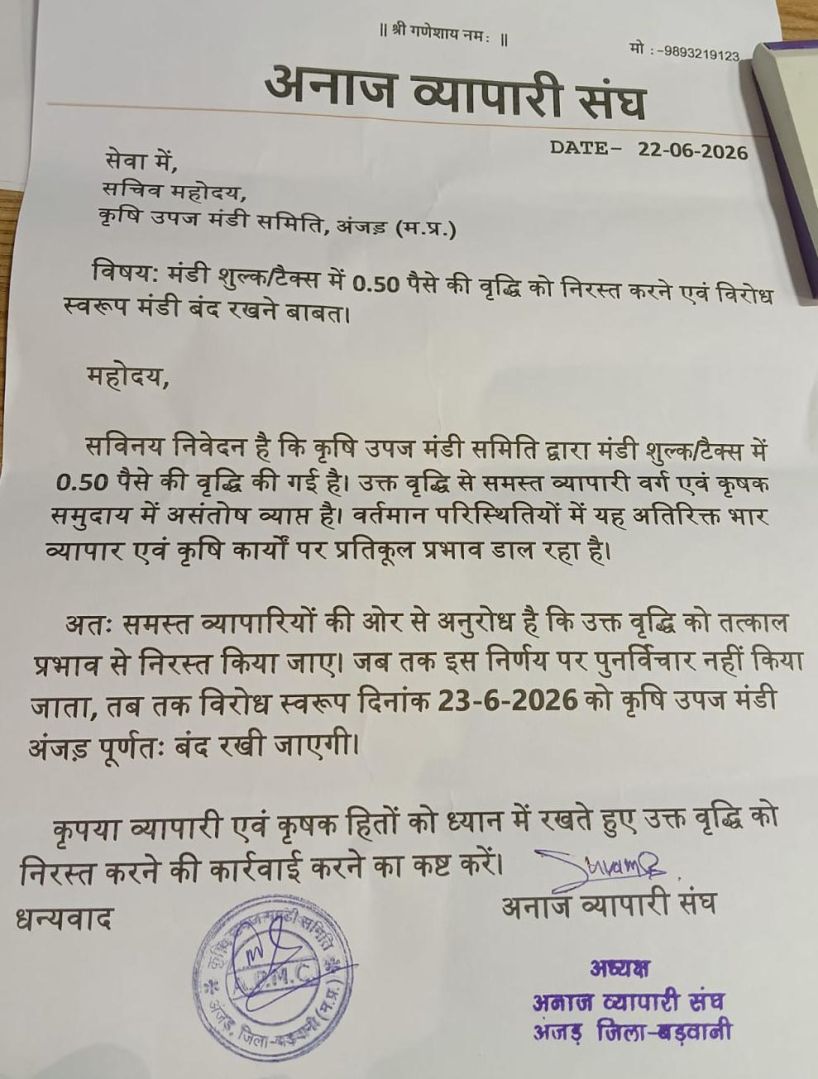 || श्री गणेशाय नमः ||
मो :-9893219123
अनाज व्यापारी संघ
DATE- 22-06-2026
सेवा में,
सचिव महोदय,
कृषि उपज मंडी समिति, अंजड़ (म.प्र.)
विषय: मंडी शुल्क/टैक्स में 0.50 पैसे की वृद्धि को निरस्त करने एवं विरोध
स्वरूप मंडी बंद रखने बाबत।
महोदय,
सविनय निवेदन है कि कृषि उपज मंडी समिति द्वारा मंडी शुल्क/टैक्स में
0.50 पैसे की वृद्धि की गई है। उक्त वृद्धि से समस्त व्यापारी वर्ग एवं कृषक
समुदाय में असंतोष व्याप्त है। वर्तमान परिस्थितियों में यह अतिरिक्त भार
व्यापार एवं कृषि कार्यों पर प्रतिकूल प्रभाव डाल रहा है।
अतः समस्त व्यापारियों की ओर से अनुरोध है कि उक्त वृद्धि को तत्काल
प्रभाव से निरस्त किया जाए। जब तक इस निर्णय पर पुनर्विचार नहीं किया
जाता, तब तक विरोध स्वरूप दिनांक 23-6-2026 को कृषि उपज मंडी
अंजड़ पूर्णतः बंद रखी जाएगी।
कृपया व्यापारी एवं कृषक हितों को ध्यान में रखते हुए उक्त वृद्धि को
निरस्त करने की कार्रवाई करने का कष्ट करें।
धन्यवाद
अनाज व्यापारी संघ
अध्यक्ष
अनाज व्यापारी संघ
अंजड़ जिला-बड़वानी
कृषि उपज मण्डी समिति
A.P.M.C.
अंजड़, जिला-बड़वानी (म.प्र.)